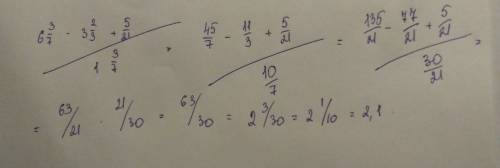 (6 3/7 - 3 2/3 + 5/21) / (1 3/7) = (45/7 - 11/3 + 5/21) / (10/7) = (135/21 - 77/21 + 5/21) / (30/21) =
= 63/21 · 21/30 = 63/30 = 2 3/30 = 2 1/10 = 2,1.